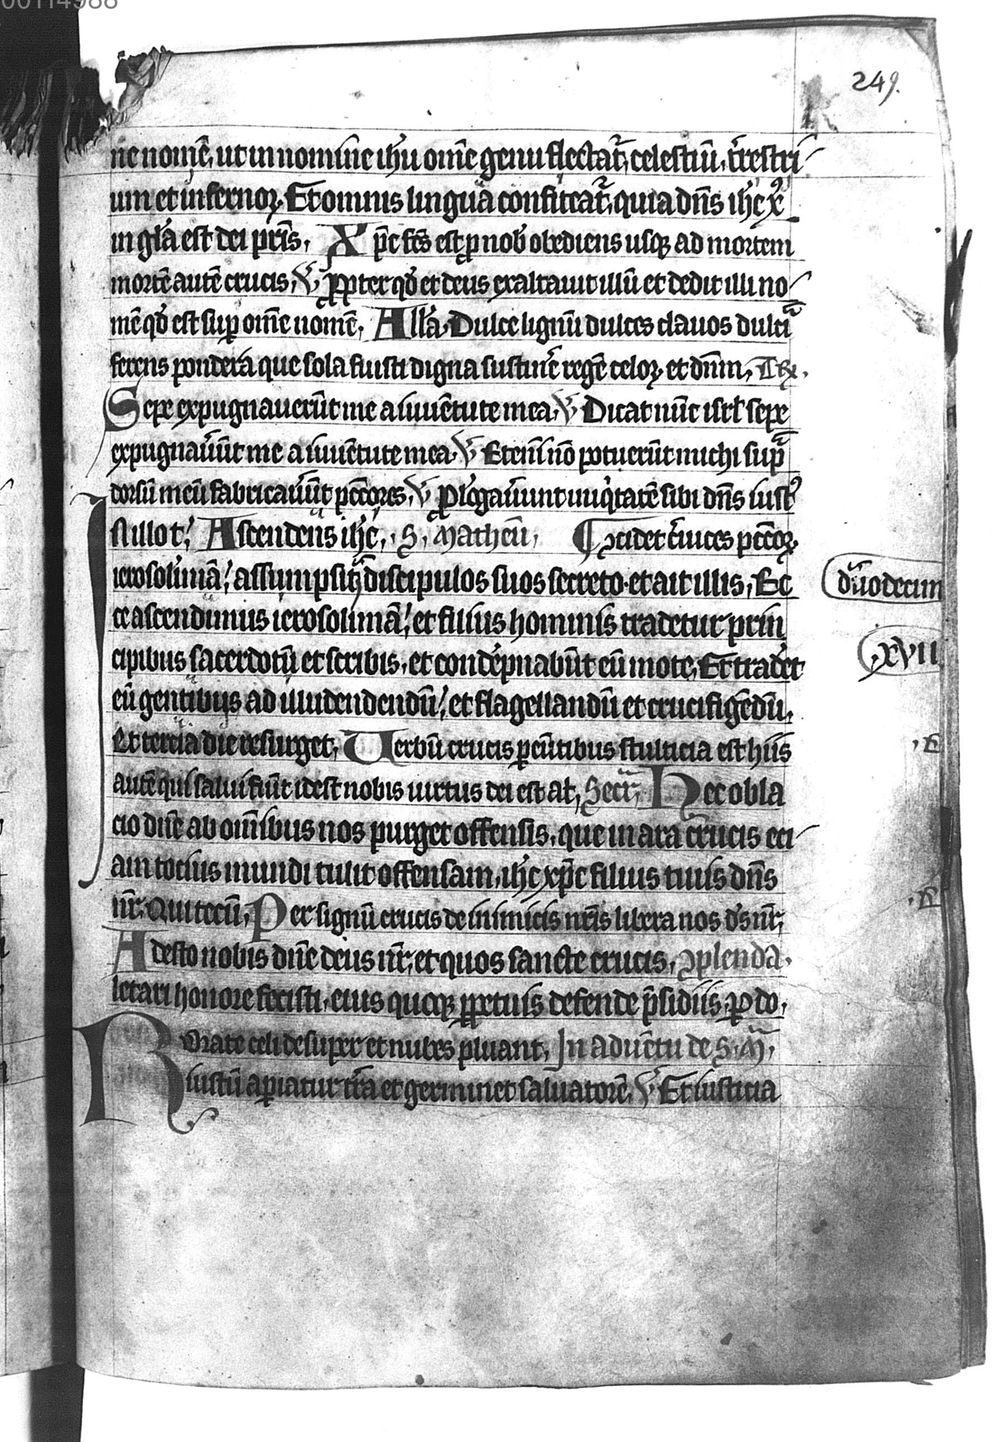 249.
ne nomē, ut in nomine ihu om̄e genu flectat᷑, celestiū, t̄restri
um et infernoꝝ. Et omnis lingua confiteat᷑, quia dn̄s ihc̄ xp̄c
in gl̄a est dei pr̄is, Xp̄c fc̄s est ꝓ nob̄ obediens usqꝫ ad mortem
mortē autē crucis, ℣ Propter qd̄ et deus exaltauit illū et dedit illi no
mē qd̄ est suꝑ om̄e nomē, All̄a. Dulce lignū dulces clauos dulcia
ferens pondera que sola fuisti digna sustin̄e regē celoꝝ et dn̄m, Tr̄.
Sepe expugnauerūt me a iuuētute mea, ℣ Dicat nūc isrl̄ sepe
expugnau̅ūt me a iuuētute mea ℣ Eteni nō potuerūt michi sup̄
dorsū meū fabricau̅ūt pc̄cōres, ℣ Prolōgau̅unt iniq̇tatē sibi dn̄s iust
Ascendens ihc̄, S. Matheū,
ierosolimā, assumpsit discipulos suos secreto et ait illis, Ec
ce ascendimus ierosolimā, et filius hominis tradetur prin
duodecim
cipibus sacerdotū et scribis, et condēpnabūt eū morte, Et tradēt
xvii
eū gentibus ad illudendendū, et flagellandū et crucifigēdū,
et tercia die resurget, Uerbū crucis ꝑeūtibus stulticia est hiis
autē qui salui fiūt idest nobis uirtus dei est at, Secr̄, Hec obla
cio dn̄e ab om̄ibus nos purget offensis, que in ara crucis eci
am tocius mundi tulit offensam, ihc̄ xp̄c filius tuus dn̄s
nr̄. Qui tecū, Per signū crucis de inimicis nr̄is libera nos ds̄ nr̄,
Adesto nobis dn̄e deus nr̄, et quos sancte crucis, ꝯplenda.
letari honore fecisti, eius quoqꝫ ꝑpetuis defende p̄sidiis, ꝑ do,
Rorate celi desuper et nubes pluant, In aduētu de S. M,
iustū aꝑiatur tr̄a et germinet saluatorē, ℣ Et iusticia